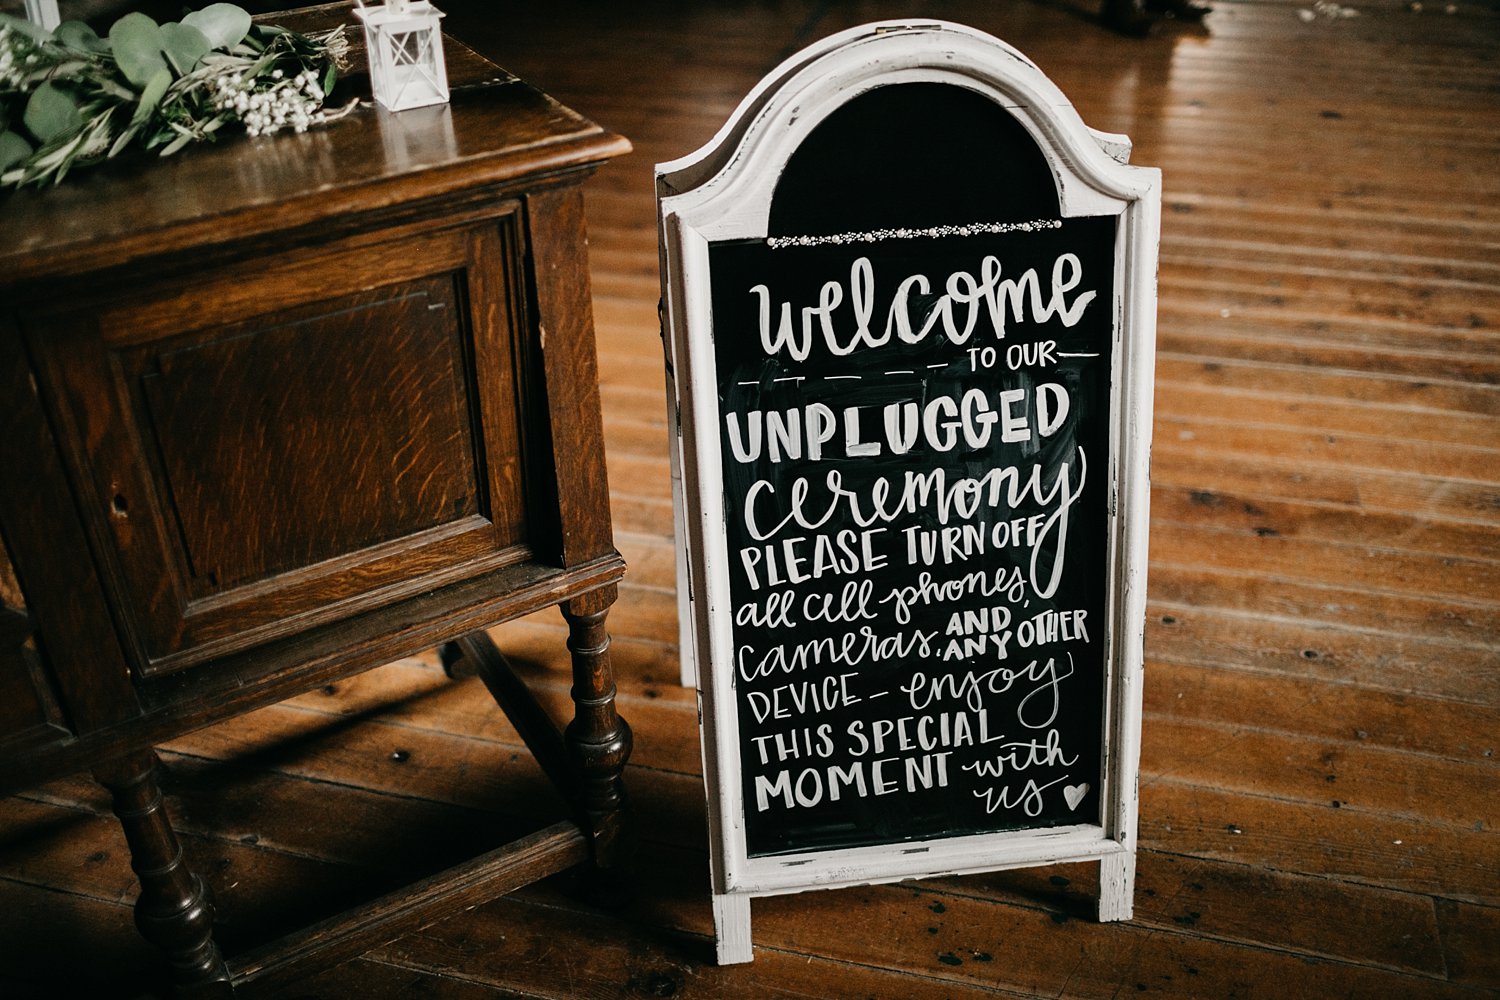 welcome
TO OUR
UNPLUGGED
ceremony
PLEASE TURN OFF
all cell phones,
cameras, AND ANY OTHER
DEVICE - enjoy
THIS SPECIAL
MOMENT with
us